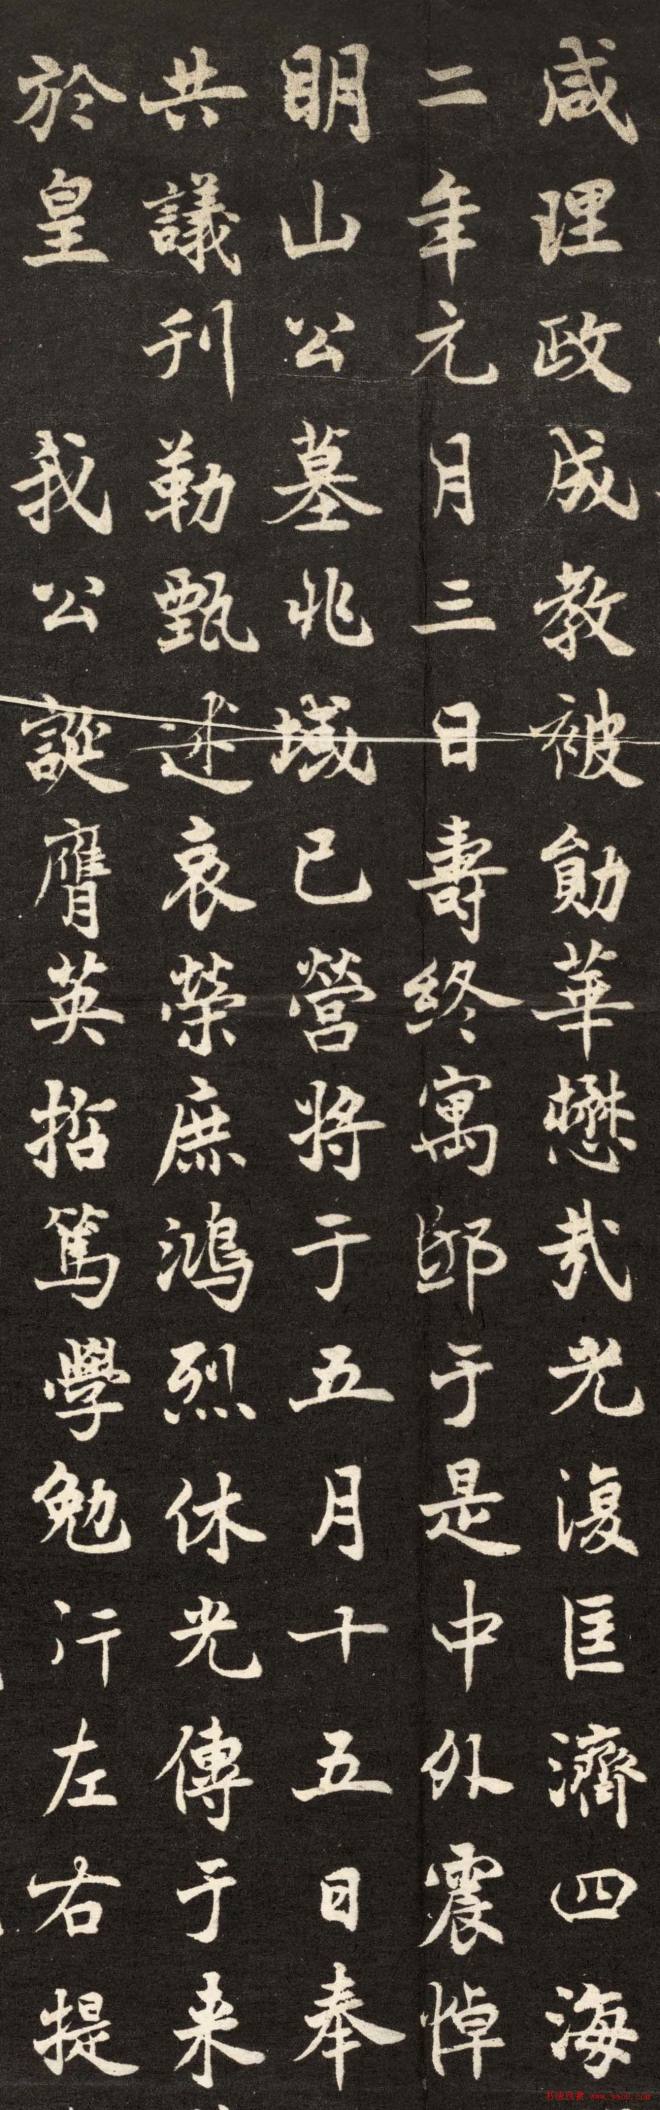 咸理政成教被勛華懋哉光復匡濟四海
二年元月三日壽終寓邸于是中外震悼
明山公墓兆域已營将于五月十五日奉
共議刊勒甄述哀榮庶鴻烈休光傳于来
於皇 我公誕膺英哲篤學勉行左右提